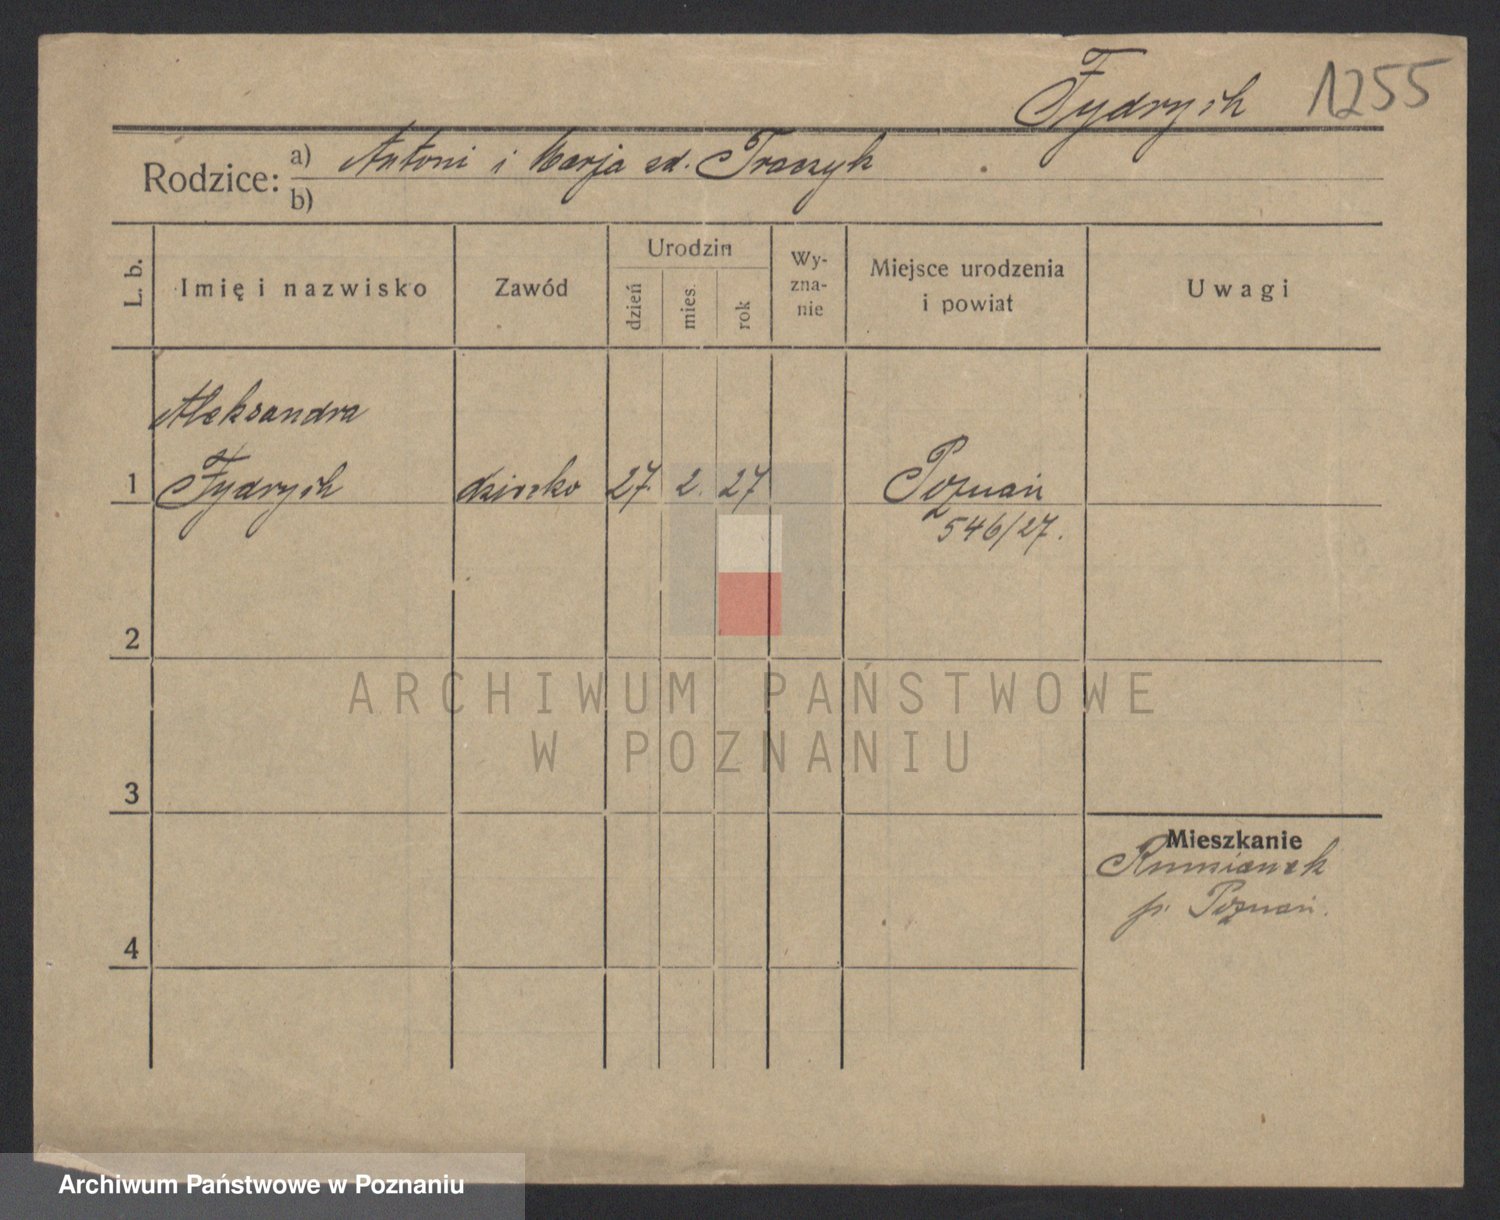 Fydrych 1255
Rodzice: a) Antoni i Marja zd. Traczyk
b)
L. b.
Imię i nazwisko
Zawód
Urodzin
dzień
mies.
rok
Wy-
zna-
nie
Miejsce urodzenia
i powiat
Uwagi
Aleksandra
1 Fydrych dziecko 27. 2. 27 Poznań
546/27.
2
3
4
Mieszkanie
Rumianek
p. Poznań.
ARCHIWUM PAŃSTWOWE
W POZNANIU
Archiwum Państwowe w Poznaniu